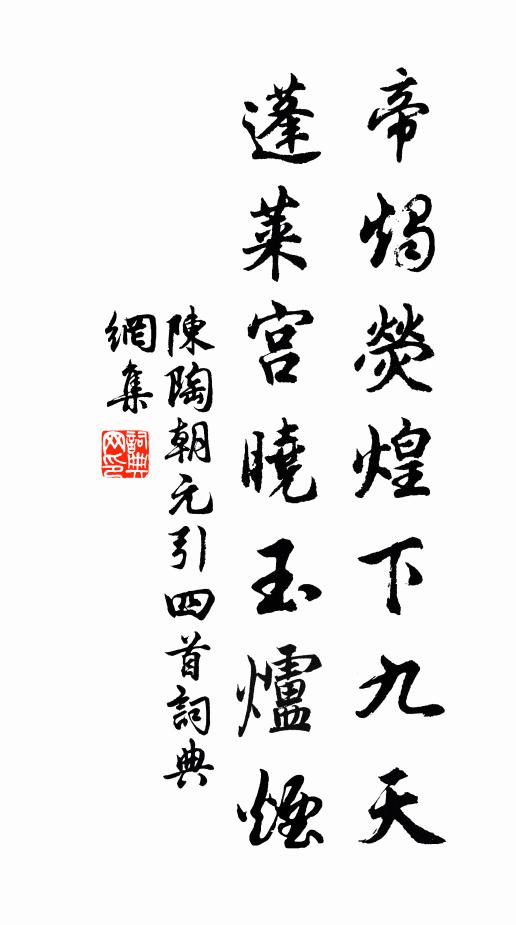 帝燭熒煌下九天
蓬萊宮曉玉爐煙
陳陶朝元引四首詞典
網集
詞典網印